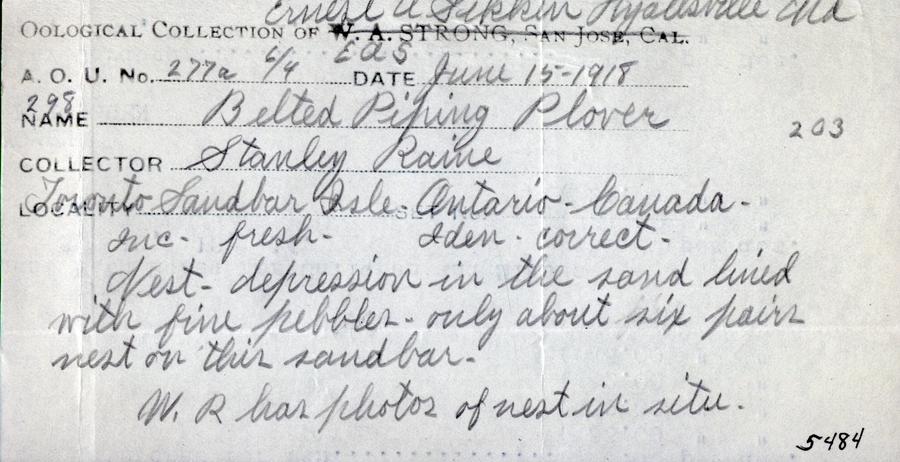 Ernest A Sikken Hyattsville Md
OOLOGICAL COLLECTION OF W. A. STRONG, SAN JOSE, CAL.
EaS
A. O. U. No. 277a 6/4 DATE June 15-1918
298
NAME Belted Piping Plover
203
COLLECTOR Stanley Raine
LOCALITY Toronto Sandbar Isle - Ontario - Canada -
Inc - fresh - Iden - correct -
Nest - depression in the sand lined
with fine pebbles - only about six pairs
nest on this sandbar -
W. R has photos of nest in situ.
5484